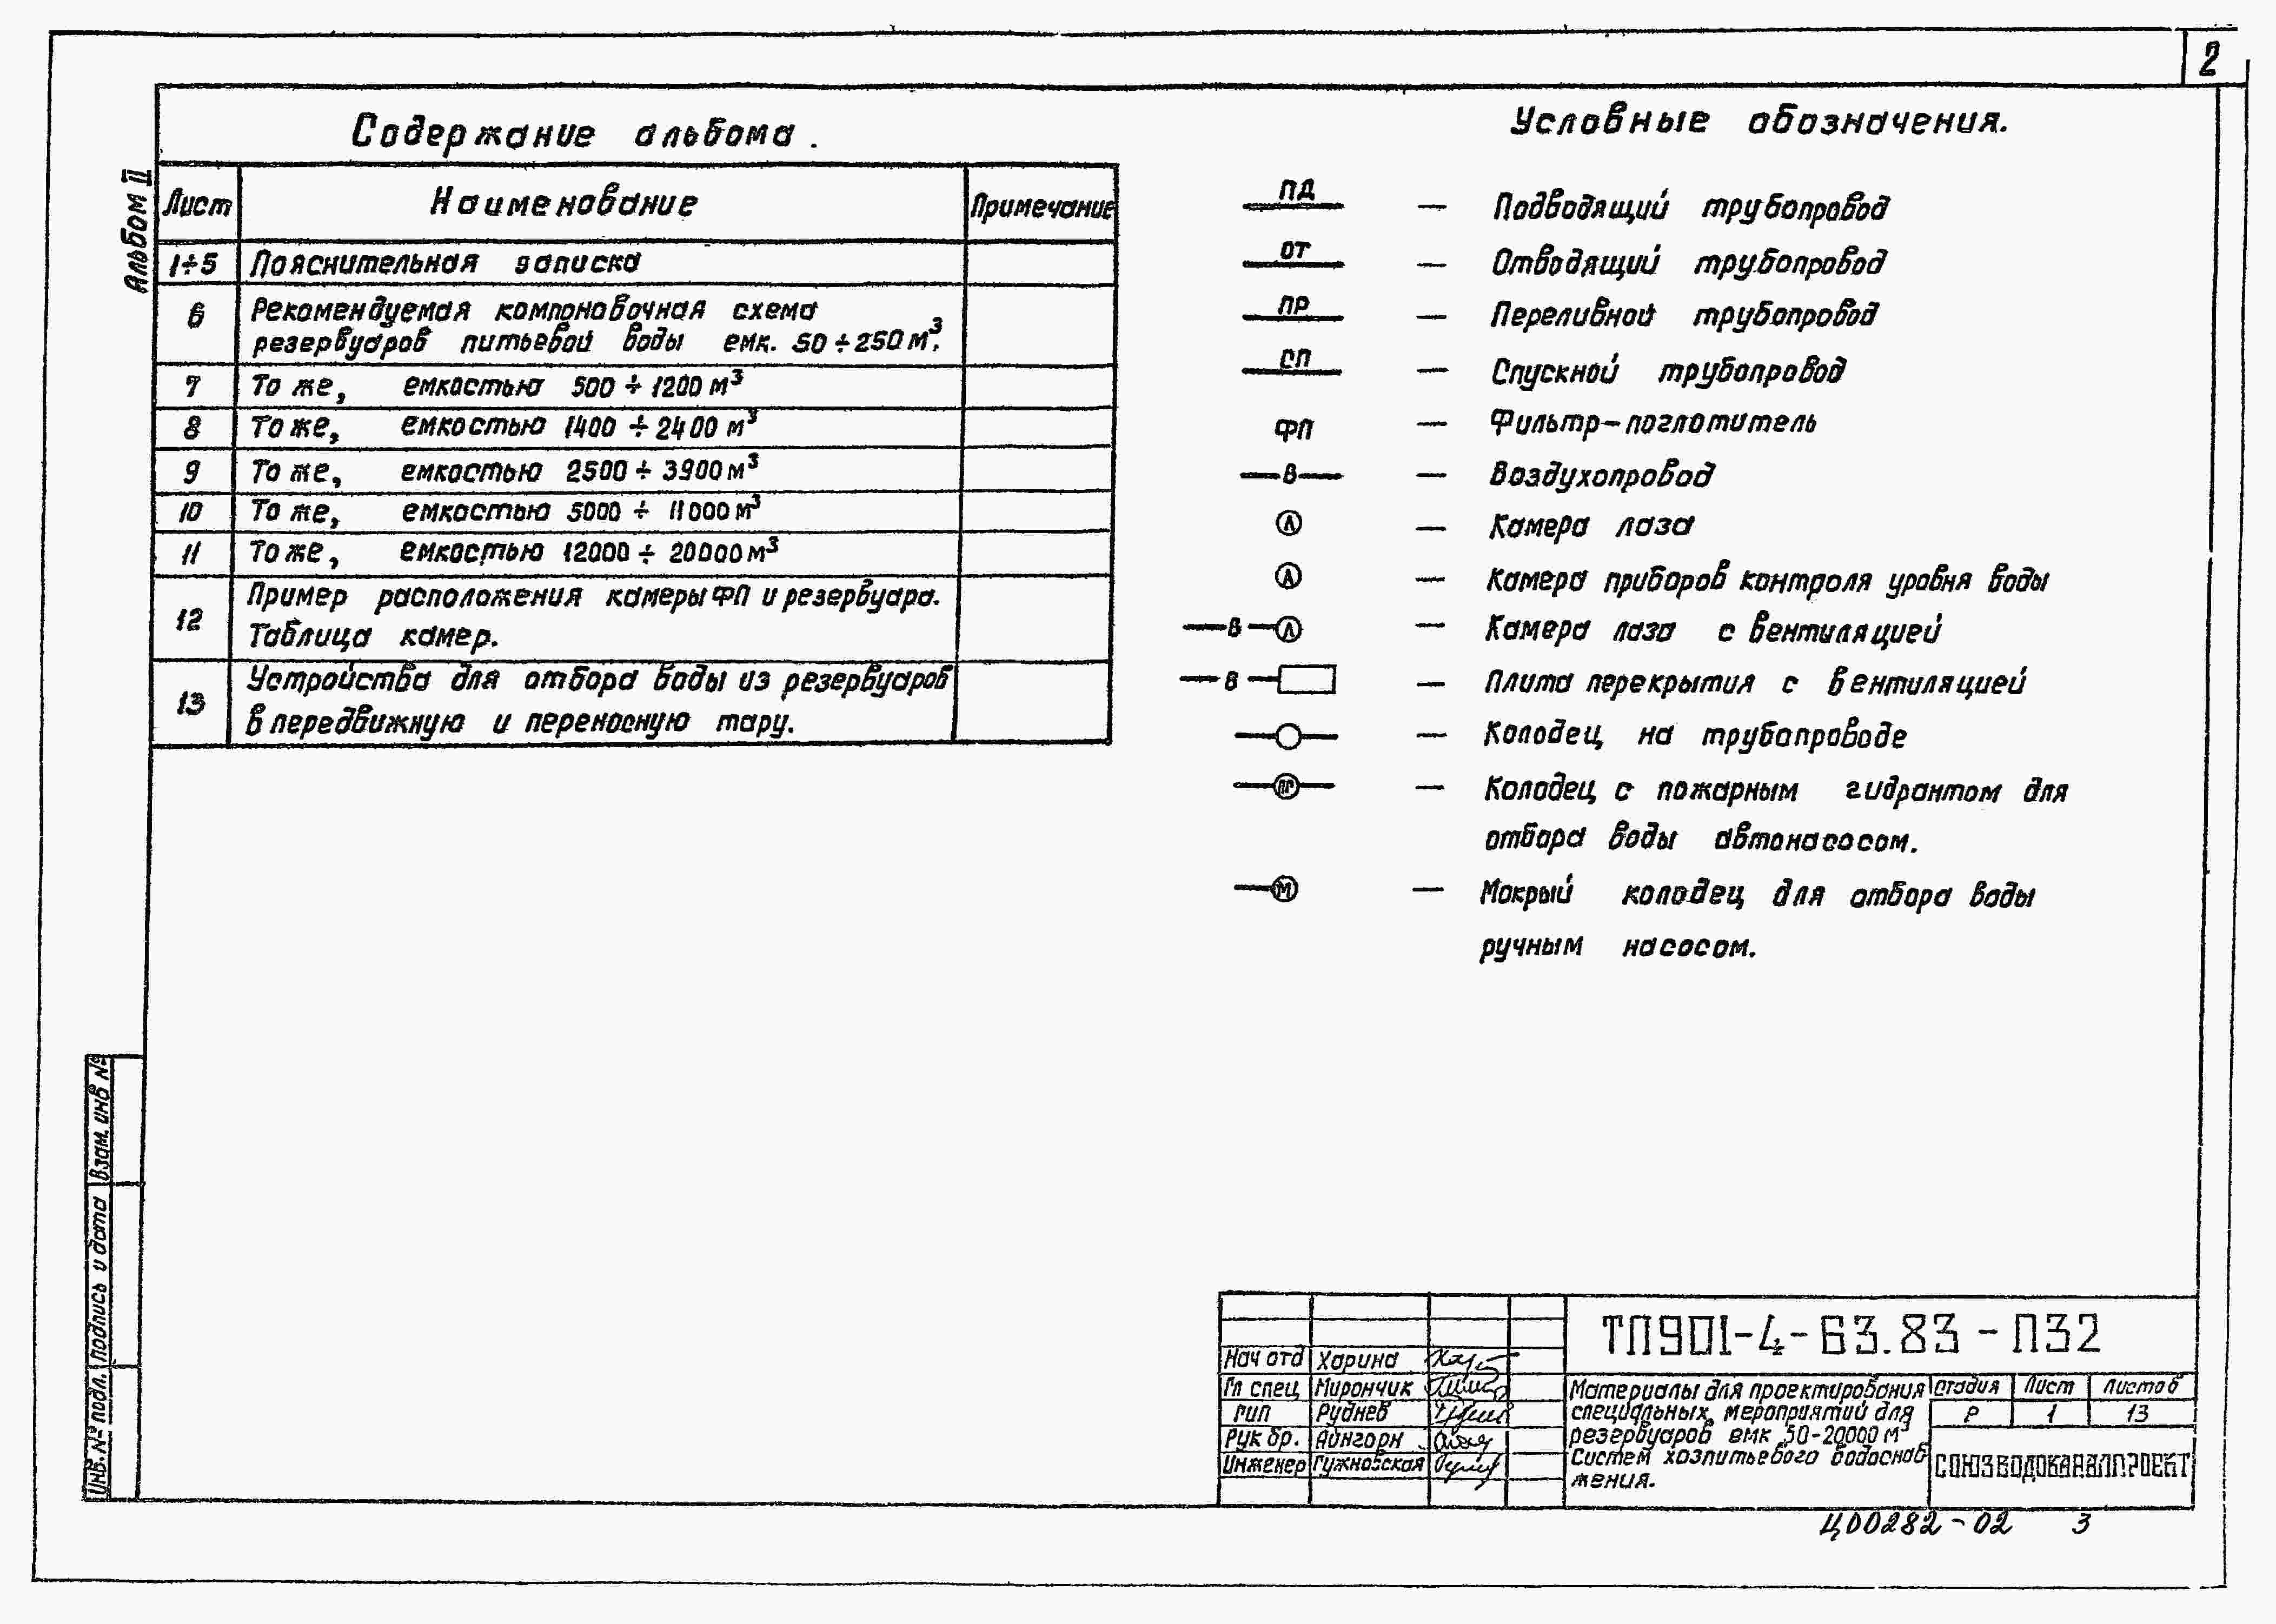 2
Альбом II
Содержание альбома.
Лист Наименование Примечание
1÷5 Пояснительная записка
6 Рекомендуемая компоновочная схема
резервуаров питьевой воды емк. 50÷250 м³.
7 То же, емкостью 500 ÷ 1200 м³
8 То же, емкостью 1400 ÷ 2400 м³
9 То же, емкостью 2500 ÷ 3900 м³
10 То же, емкостью 5000 ÷ 11000 м³
11 То же, емкостью 12000 ÷ 20000 м³
12 Пример расположения камеры ФП и резервуара.
Таблица камер.
13 Устройства для отбора воды из резервуаров
в передвижную и переносную тару.
Условные обозначения.
ПД — Подводящий трубопровод
ОТ — Отводящий трубопровод
ПР — Переливной трубопровод
СП — Спускной трубопровод
ФП — Фильтр-поглотитель
В — Воздухопровод
Л — Камера лаза
А — Камера приборов контроля уровня воды
В Л — Камера лаза с вентиляцией
В — Плита перекрытия с вентиляцией
— Колодец на трубопроводе
ПГ — Колодец с пожарным гидрантом для
отбора воды автонасосом.
М — Мокрый колодец для отбора воды
ручным насосом.
Взам. инв №
Подпись и дата
Инв. № подл.
ТП901-4-63.83-ПЗ2
Нач отд Харина
Гл спец Мирончик
ГИП Руднев
Рук бр. Айнгорн
Инженер Гужновская
Материалы для проектирования
специальных мероприятий для
резервуаров емк 50-20000 м³
Систем хозпитьевого водоснаб
жения.
Стадия Лист Листов
Р 1 13
СОЮЗВОДОКАНАЛПРОЕКТ
Ц00282-02 3